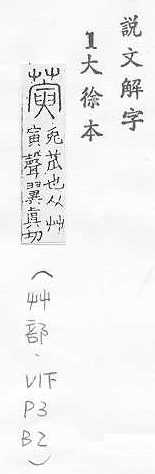 説文解字
1大徐本
𦿌
兔苽也从艸
寅聲翼眞切
(艸部·VIF
P3
B2)